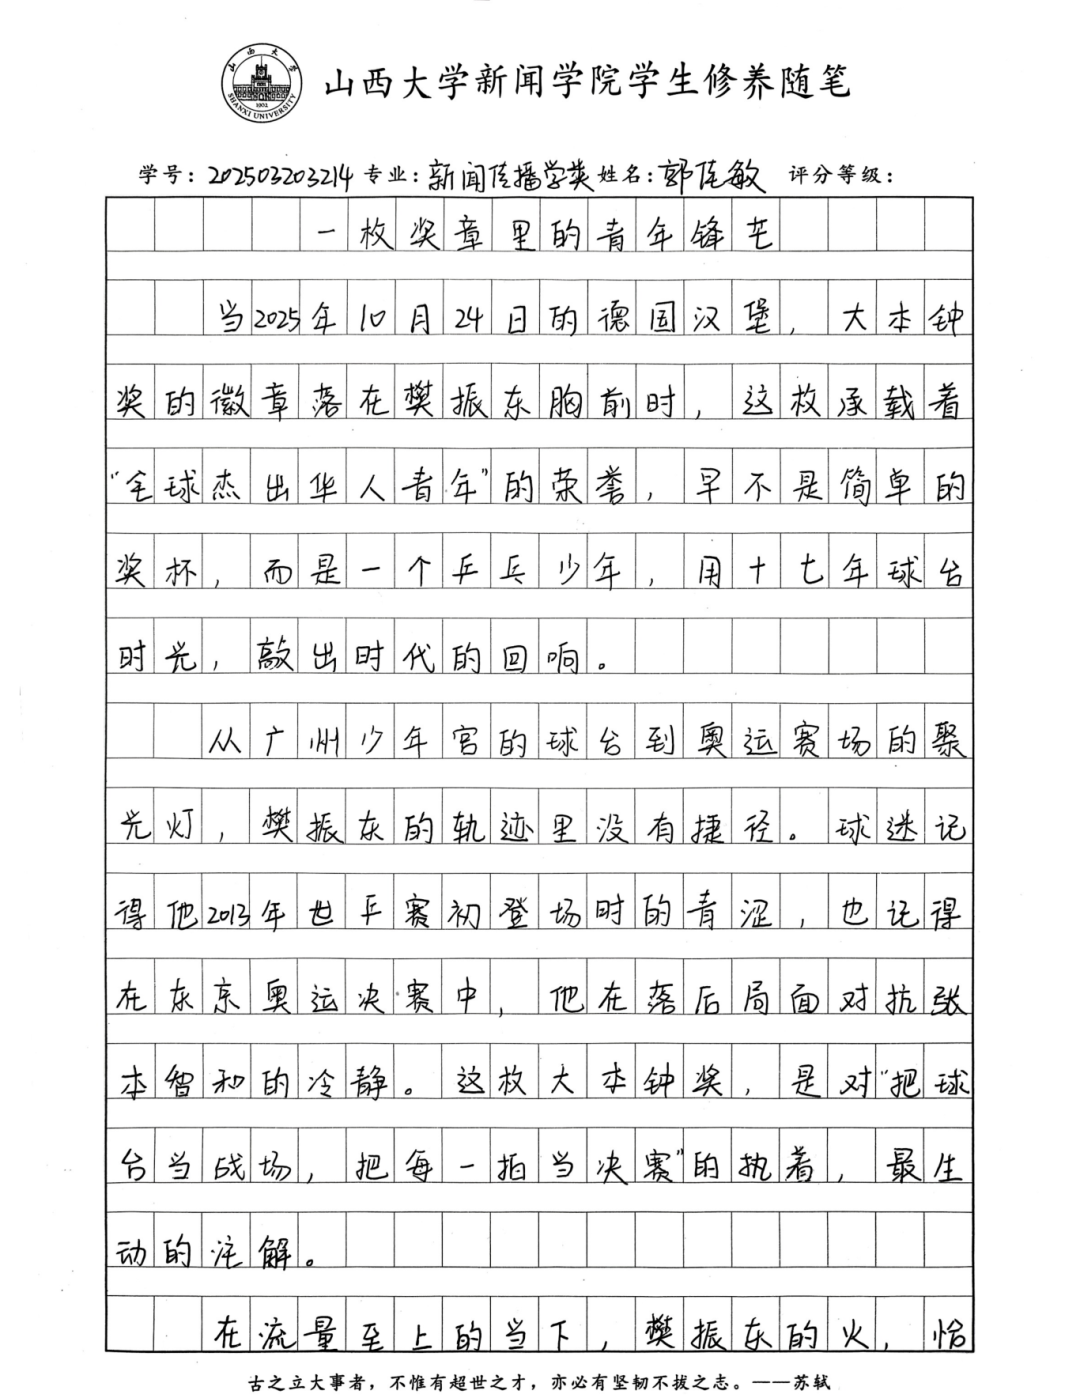 山西大学
SHANXI UNIVERSITY
1902
山西大学新闻学院学生修养随笔
学号：202503203214 专业：新闻传播学类 姓名：郭佳敏 评分等级：
一枚奖章里的青年锋芒
当2025年10月24日的德国汉堡，大本钟
奖的徽章落在樊振东胸前时，这枚承载着
“全球杰出华人青年”的荣誉，早不是简单的
奖杯，而是一个乒乓少年，用十七年球台
时光，敲出时代的回响。
从广州少年宫的球台到奥运赛场的聚
光灯，樊振东的轨迹里没有捷径。球迷记
得他2013年世乒赛初登场时的青涩，也记得
在东京奥运决赛中，他在落后局面对抗张
本智和的冷静。这枚大本钟奖，是对“把球
台当战场，把每一拍当决赛”的执着，最生
动的注解。
在流量至上的当下，樊振东的火，恰
古之立大事者，不惟有超世之才，亦必有坚韧不拔之志。——苏轼